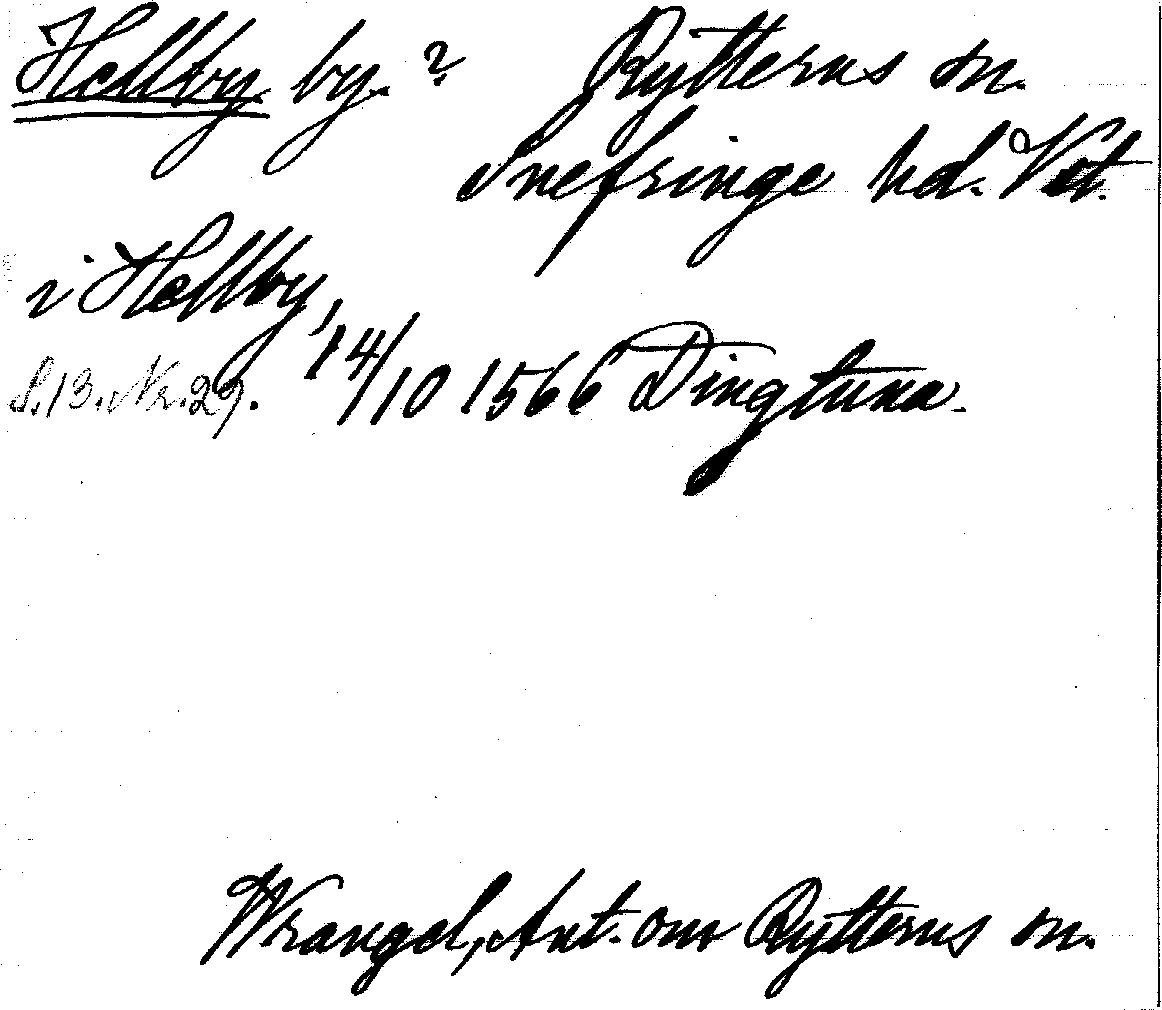 Hellby by. ? Rytterns sn.
Snefringe hd. Vst.
i Hellby, 14/10 1566 Dingtuna.
S. 13. Nr. 29.
Wrangel, Ant. om Rytterns sn.